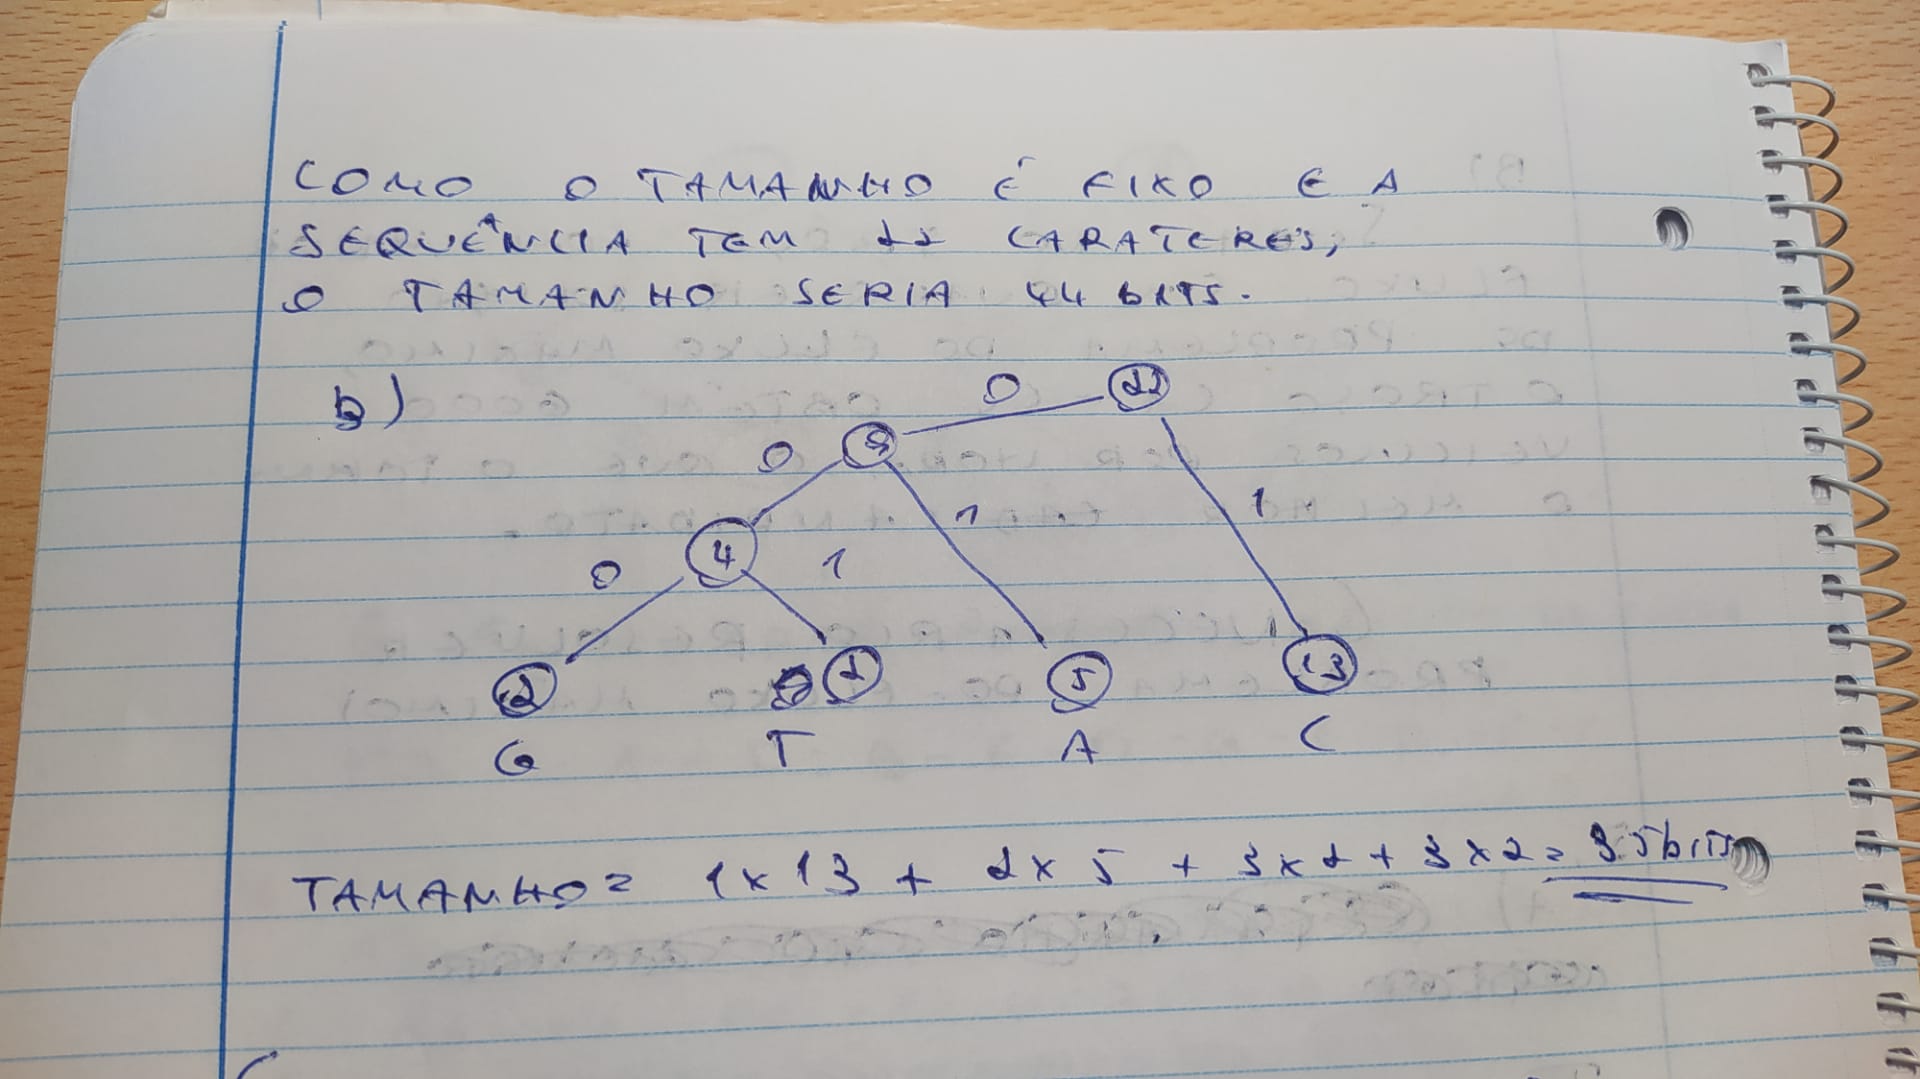 COMO O TAMANHO É FIXO E A
SEQUÊNCIA TEM 22 CARATERES,
O TAMANHO SERIA 44 BITS.
b)
0 22
0 9
1 1
4
0 1
2 2 5 13
G T A C
TAMANHO = 1x13 + 2x5 + 3x2 + 3x2 = 35bits